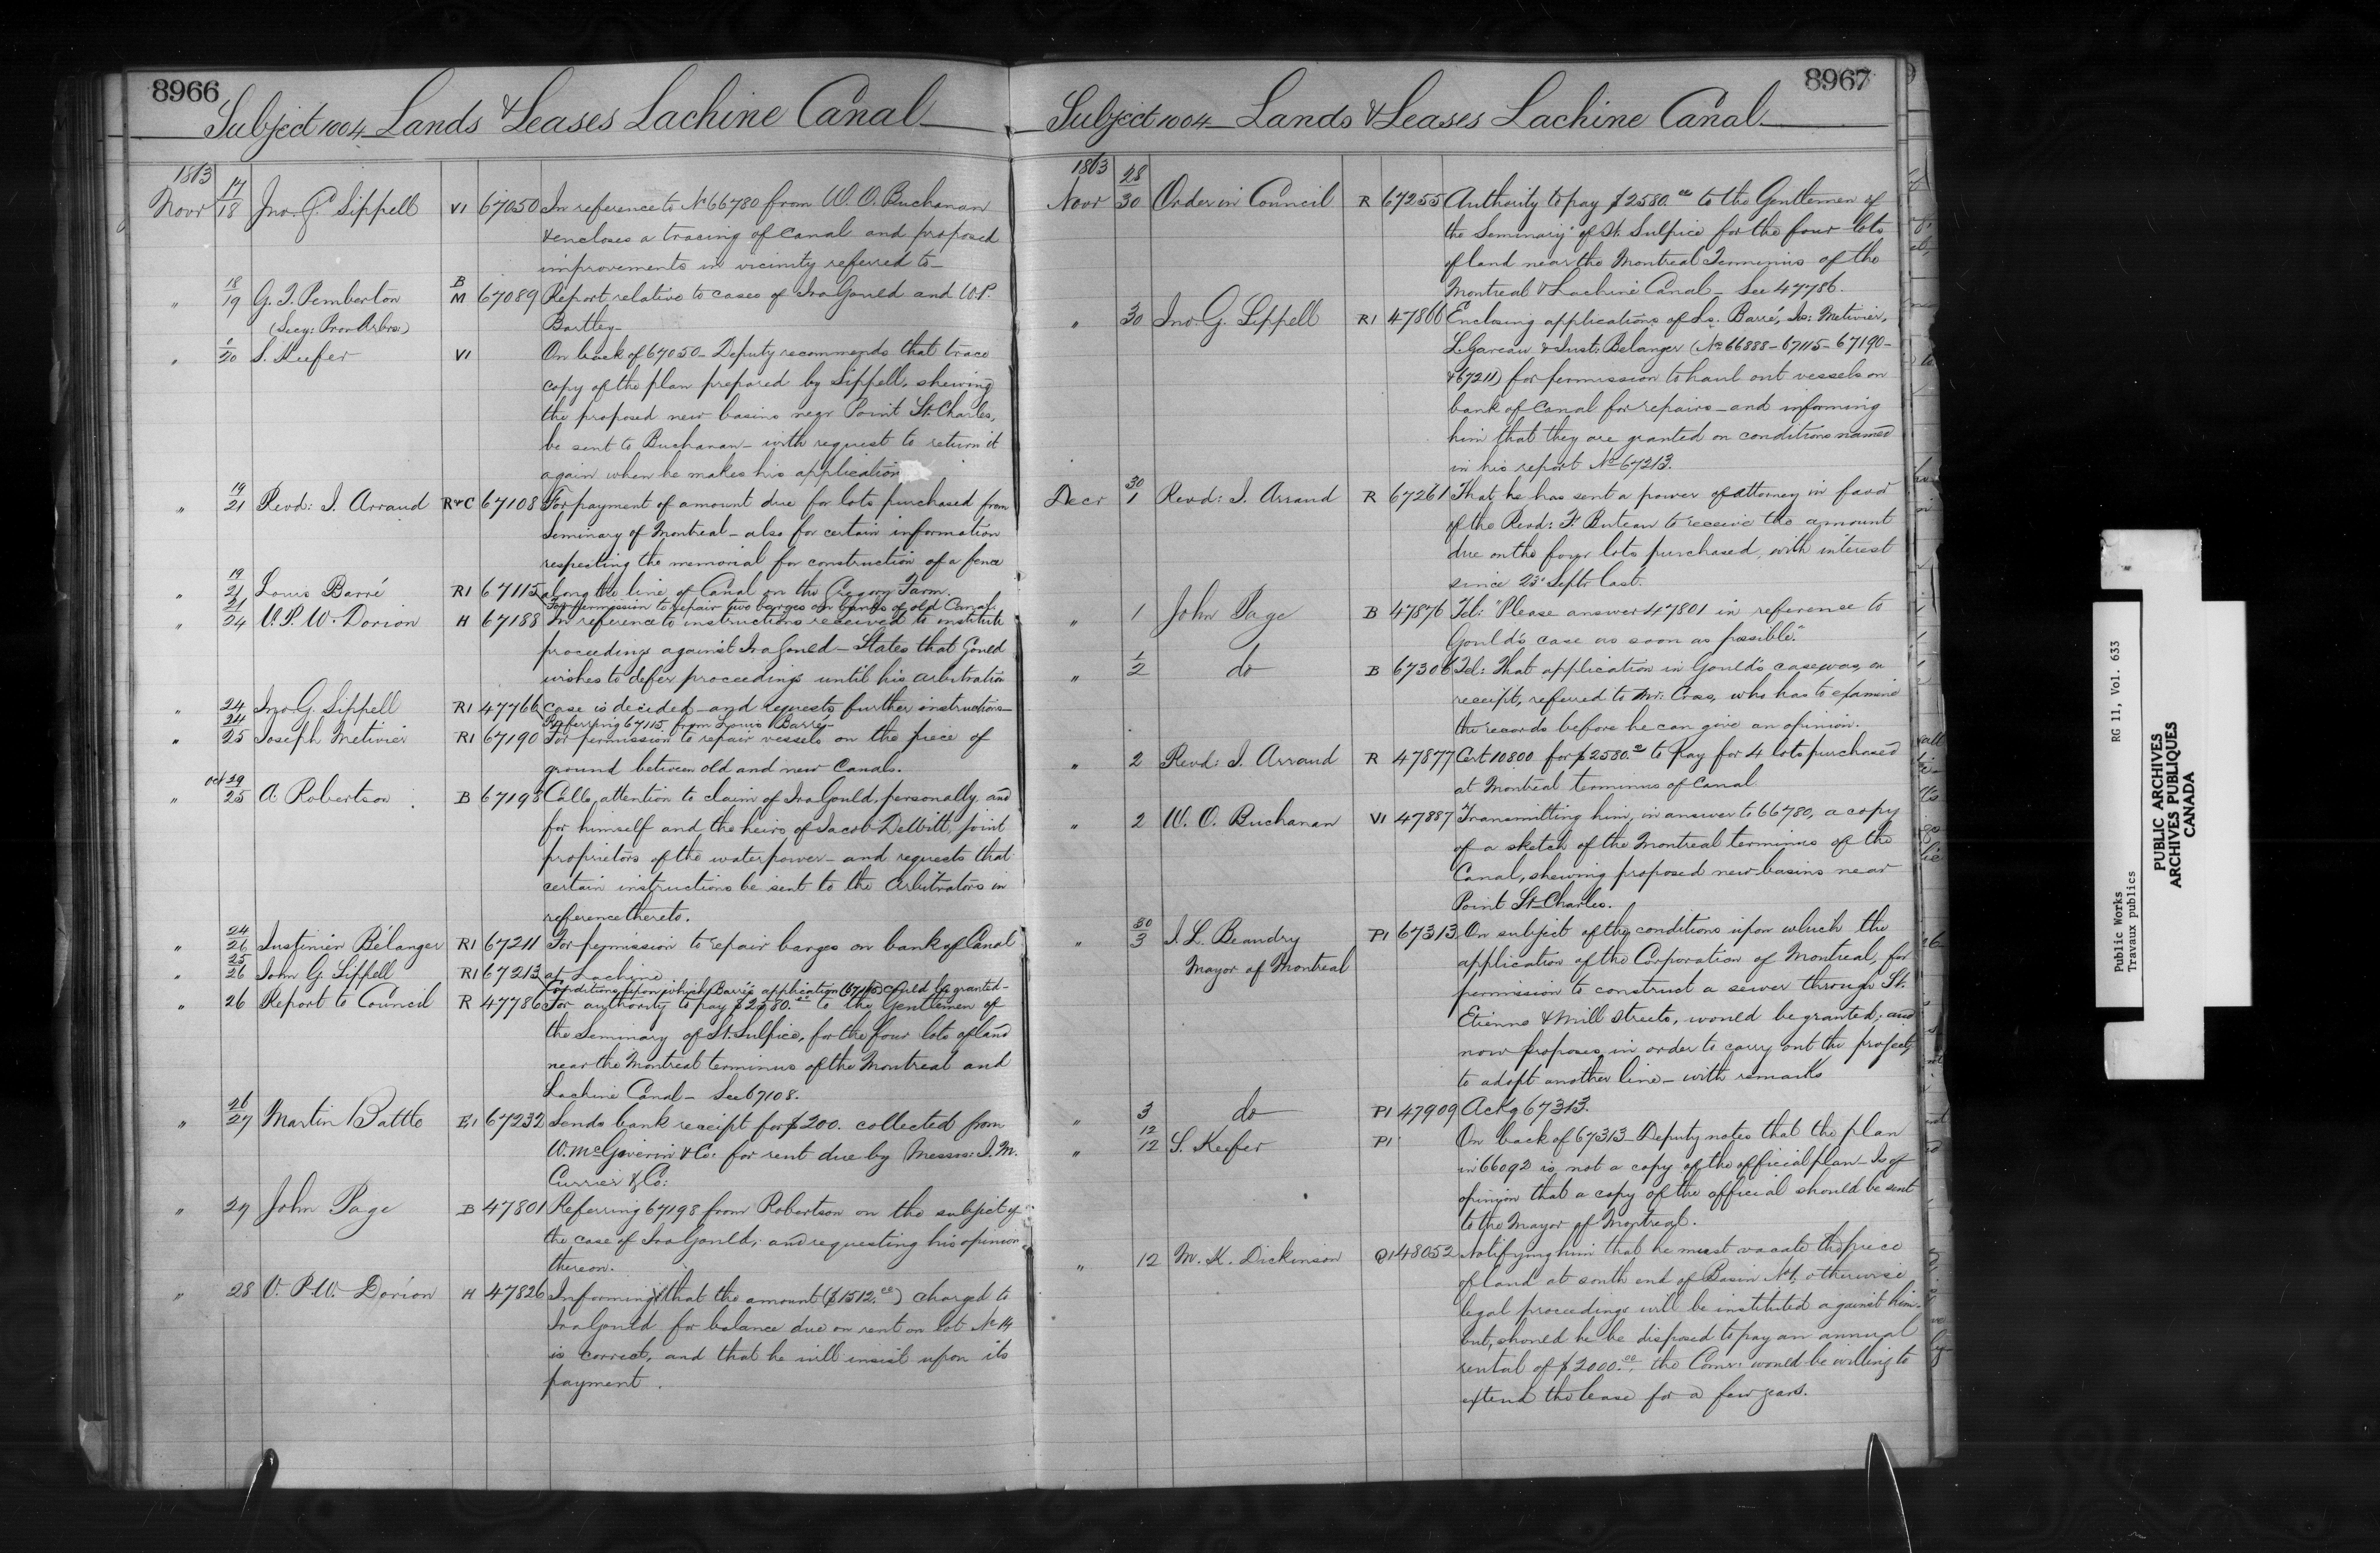 8966
Subject 1004 Lands & Leases Lachine Canal
1863
Novr 17/18 Jno. G. Sippell VI 67050 In reference to No 66780 from W. O. Buchanan
& encloses a tracing of Canal and proposed
improvements in vicinity referred to—
" 18/19 G. T. Pemberton B M 67089 Report relative to cases of Ira Gould and W. P.
(Secy: Prov Arbrs:) Bartley—
" 20 S. Keefer VI On back of 67050— Deputy recommends that trace
copy of the plan prepared by Sippell, shewing
the proposed new basins near Point St. Charles,
be sent to Buchanan— with request to return it
again when he makes his application
" 19/21 Revd: I. Arraud R&C 67108 For payment of amount due for lots purchased from
Seminary of Montreal— also for certain information
respecting the memorial for construction of a fence
along the line of Canal on the Gregory Farm.
" 19/21 Louis Barré R1 67115 For permission to repair two barges on banks of old Canal.
" 21/24 V. P. W. Dorion H 67188 In reference to instructions received to institute
proceedings against Ira Gould— States that Gould
wishes to defer proceedings until his arbitration
case is decided— and requests further instructions—
" 24 Jno G. Sippell R1 47766 Referring 67115 from Louis Barré—
" 24/25 Joseph Metivier R1 67190 For permission to repair vessels on the piece of
ground between old and new Canals.
" Oct 29/25 A. Robertson B 67198 Calls attention to claim of Ira Gould, personally and
for himself and the heirs of Jacob DeWitt, joint
proprietors of the water power— and requests that
certain instructions be sent to the Arbitrators in
reference thereto.
" 24/26 Justinien Bélanger R1 67211 For permission to repair barges on bank of Canal
at Lachine
" 25/26 John G. Sippell R1 67213 Conditions upon which Barré's application (67115) could be granted—
" 26 Report to Council R 47786 For authority to pay $2580.00 to the Gentlemen of
the Seminary of St. Sulpice, for the four lots of land
near the Montreal terminus of the Montreal and
Lachine Canal— See 67108.
" 26/27 Martin Battle E1 67232 Sends bank receipt for $200. collected from
W. McGiverin & Co: for rent due by Messrs: J. M.
Currier & Co:
" 27 John Page B 47801 Referring 67198 from Robertson on the subject of
the case of Ira Gould, and requesting his opinion
thereon.
" 28 V. P. W. Dorion H 47826 Informing that the amount ($1512.00) charged to
Ira Gould for balance due on rent on lot No 14
is correct, and that he will insist upon its
payment.
8967
Subject 1004 Lands & Leases Lachine Canal
1863
Novr 28/30 Order in Council R 67255 Authority to pay $2580.00 to the Gentlemen of
the Seminary of St. Sulpice for the four lots
of land near the Montreal Terminus of the
Montreal & Lachine Canal— See 47786.
" 30 Jno G. Sippell R1 47866 Enclosing applications of Ls. Barré, Js: Metivier,
L. Gareau & Just: Belanger (No 66888– 67115– 67190–
& 67211) for permission to haul out vessels on
bank of Canal for repairs— and informing
him that they are granted on conditions named
in his report No 67213.
Decr 30/1 Revd: I. Arraud R 67261 That he has sent a power of attorney in favor
of the Revd: F. Buteau to receive the amount
due on the four lots purchased, with interest
since 23' Septr last.
" 1 John Page B 47876 Tel: "Please answer 47801 in reference to
Gould's case as soon as possible."
" 1/2 do B 67306 Tel: That application in Gould's case was on
receipt, referred to Mr: Cross, who has to examine
the records before he can give an opinion.
" 2 Revd: I. Arraud R 47877 Cert 10800 for $2580.00 to pay for 4 lots purchased
at Montreal terminus of Canal
" 2 W. O. Buchanan VI 47887 Transmitting him, in answer to 66780, a copy
of a sketch of the Montreal terminus of the
Canal, shewing proposed new basins near
Point St. Charles.
" 30/3 J. L. Beaudry P1 67313 On subject of the conditions upon which the
Mayor of Montreal application of the Corporation of Montreal, for
permission to construct a sewer through St.
Etienne & Mill Streets, would be granted; and
now proposes in order to carry out the project,
to adopt another line— with remarks
" 3 do P1 47909 Ackg 67313.
" 12/12 S. Keefer P1 On back of 67313— Deputy notes that the plan
in 66092 is not a copy of the official plan— Is of
opinion that a copy of the official should be sent
to the Mayor of Montreal.
" 12 M. K. Dickinson Q1 48052 Notifying him that he must vacate the piece
of land at south end of Basin No 1, otherwise
legal proceedings will be instituted against him—
but, should he be disposed to pay an annual
rental of $2000.00 the Comrs: would be willing to
extend the lease for a few years.
Public Works RG 11, Vol. 633
Travaux publics
PUBLIC ARCHIVES
ARCHIVES PUBLIQUES
CANADA